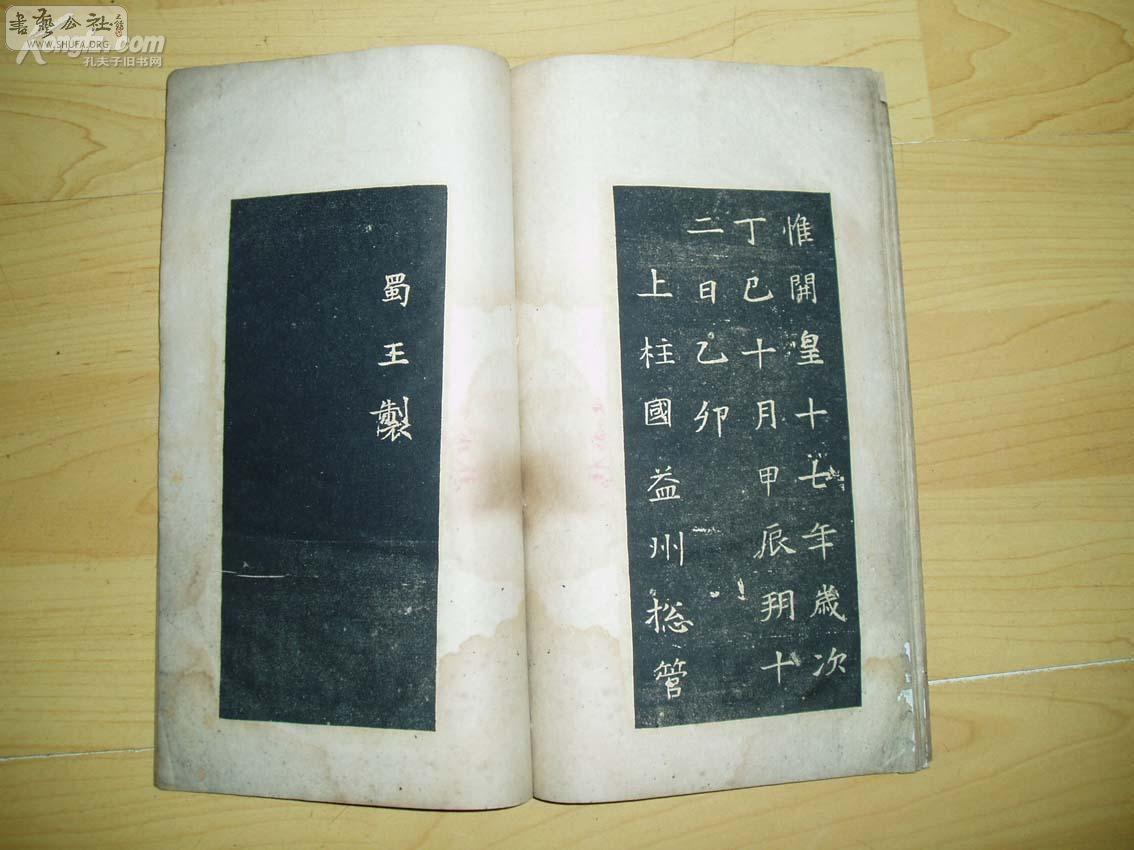 惟開皇十七年歲次
丁巳十月甲辰朔十
二日乙卯
上柱國益州揔管
蜀王製
书艺公社
WWW.SHUFA.ORG
Kongfz.com
孔夫子旧书网